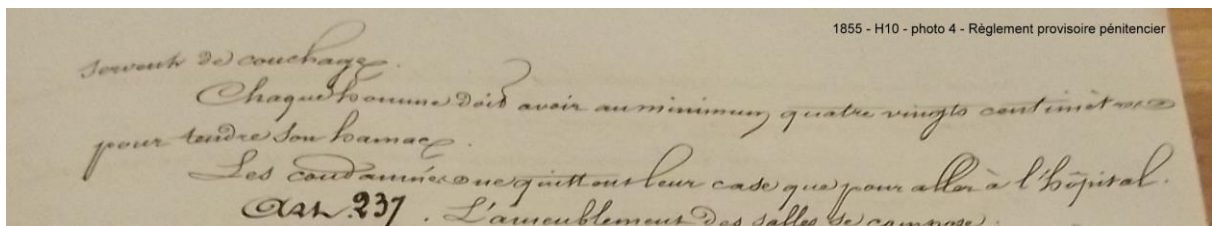 1855 - H10 - photo 4 - Règlement provisoire pénitencier
servent de couchage.
Chaque homme doit avoir au minimum quatre vingts centimètres
pour tendre son hamac.
Les condamnés ne quittent leur case que pour aller à l'hôpital.
Art. 237. L'ameublement des salles se compose :